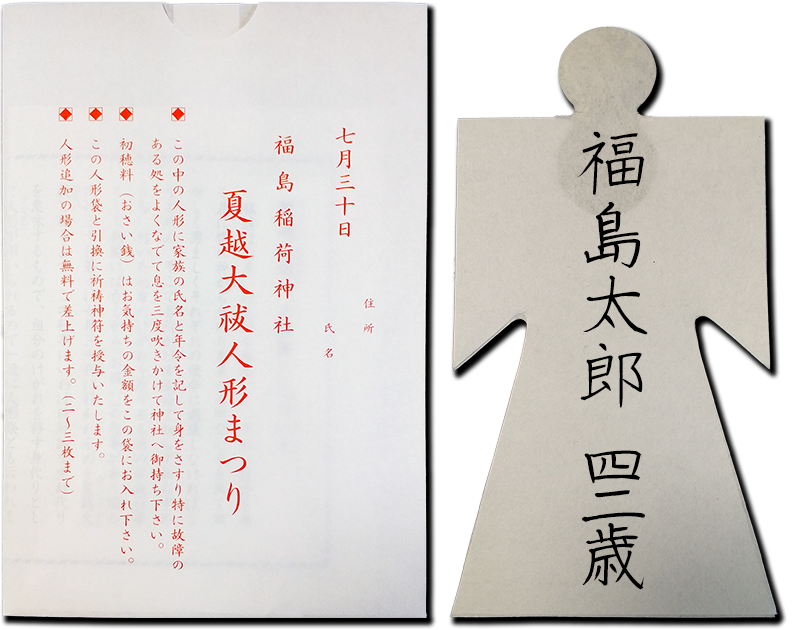 七月三十日
住所
氏名
福島稲荷神社
夏越大祓人形まつり
この中の人形に家族の氏名と年令を記して身をさすり特に故障の
ある処をよくなでて息を三度吹きかけて神社へ御持ち下さい。
初穂料（おさい銭）はお気持ちの金額をこの袋にお入れ下さい。
この人形袋と引換に祈祷神符を授与いたします。
人形追加の場合は無料で差上げます。（二〜三枚まで）
福島太郎 四二歳